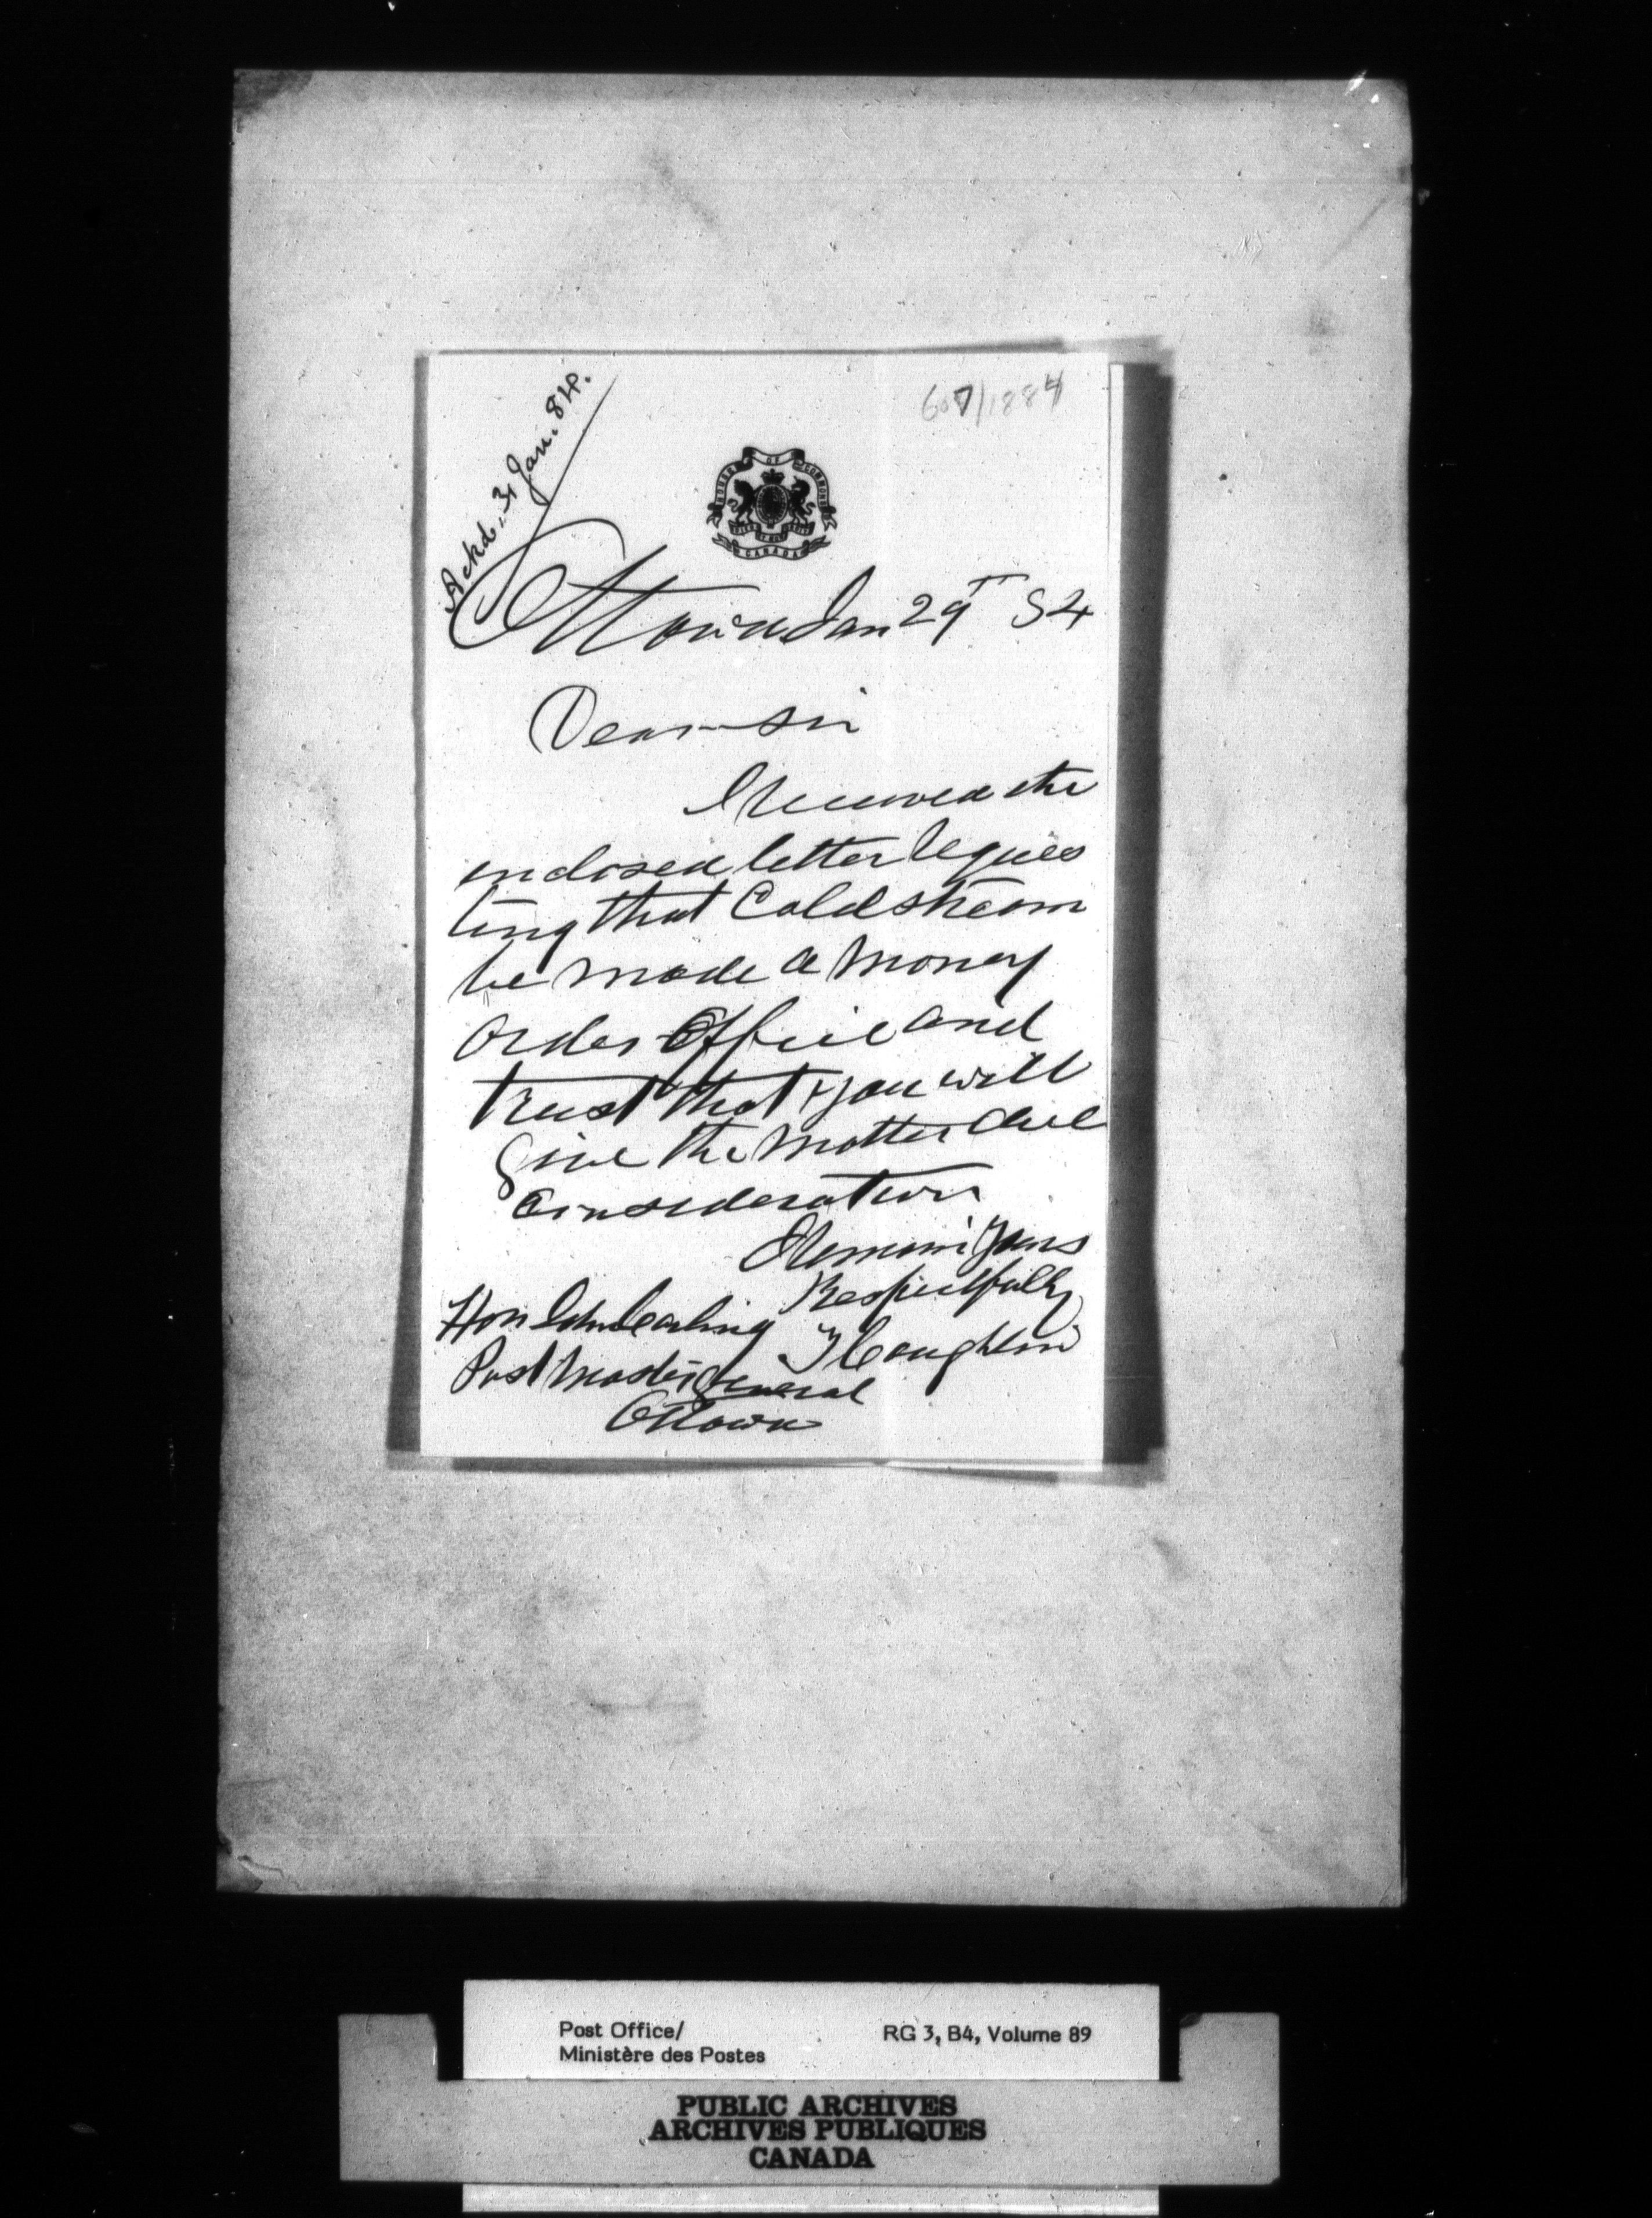 Ackd. 31 Jan. 84.
607/1884
HOUSE OF COMMONS
CANADA
Ottawa Jan 29T 84
Dear Sir
I received the
enclosed letter reques
ting that Coldstream
be made a money
order Office and
trust that you will
give the matter due
consideration
I remain yours
Respectfully
T Coughlin
Hon John Carling
Post Master General
Ottawa
Post Office/
Ministère des Postes
RG 3, B4, Volume 89
PUBLIC ARCHIVES
ARCHIVES PUBLIQUES
CANADA